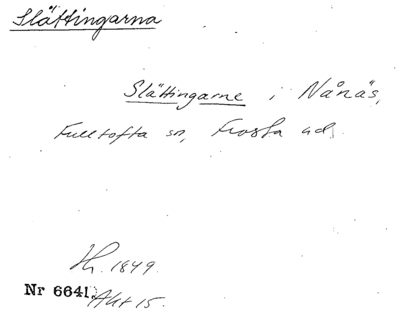 Slättingarna
Slättingarne i Nånäs,
Fulltofta sn, Frosta hd.
Hr. 1849.
Nr 6641. Akt 15.